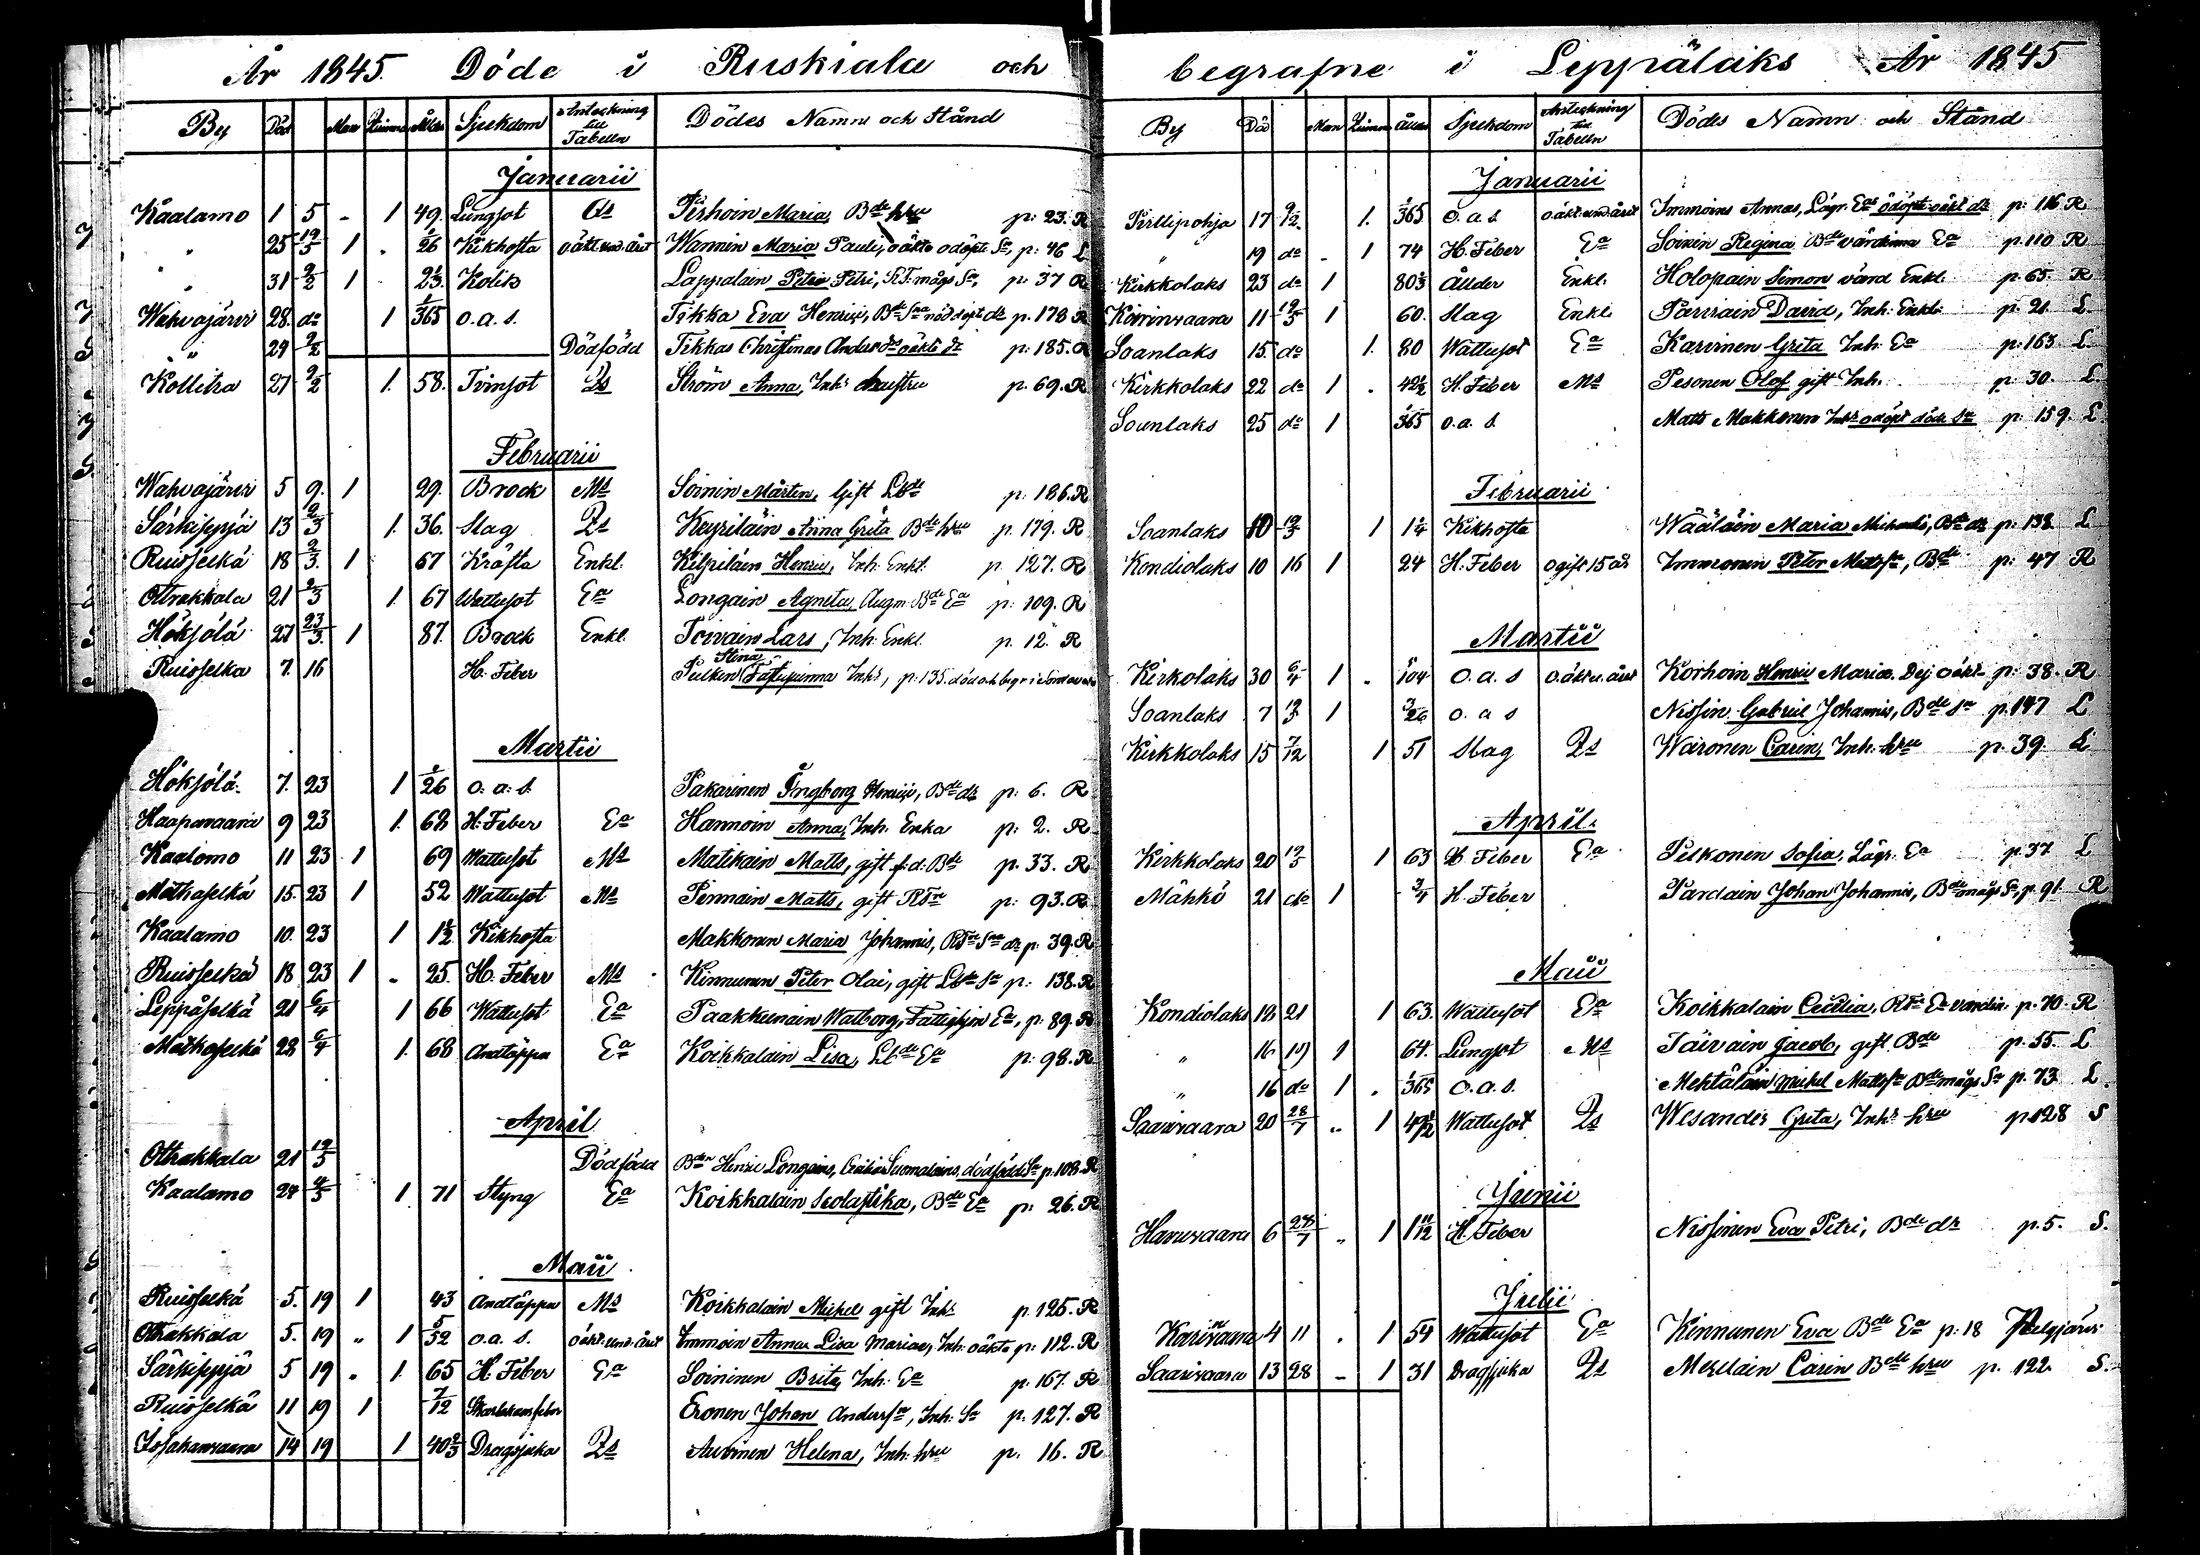 År 1845. Döde i Ruskiala och
By Död Man Quinna Ålder Sjukdom Anteckning till Tabellen Dödes Namn och Stånd
Januarii
Kaalamo 1 5 - 1 49. Lungsot Qs Maria, Bde hru p: 23. R
" 25 12/3 1 . 1/26 Kikhosta oäkt und. året Wannin Maria Pauli, oäkta odöpte So, p: 46 L
" 31 9/2 1 2 1/2. Kolik Lappalain Petri Petri, mågs So, p: 37 R
Wahvajärvi 28. do 1 1/365 o.a.s. Tikka Eva Henrici, Bde nöddöpt dr p. 178 R
" 29 9/2 Dödfödd Tikkas Christinas oäkta dr p: 185. R
Kollitsa 27 9/2 1. 58. Tvinsot Qs Ström Anna, Inhs hustru p. 69. R
Februarii
Wahvajärvi 5 9. 1 29. Brock Ms Soinin Mårten, Gift p: 186. R
Särkisyrjä 13 2/3 1. 36. Slag Qs Keyriläin Anna Greta Bde hru p. 179. R
Ruisselkä 18 2/3. 1 67 Kräfta Enkl. Kilpiläin Henric, Inh. Enkl. p. 127. R
Otrakkala 21 2/3 1. 67 Wattusot Ea Longain Agneta, Bde Ea p: 109. R
Höksölä 27 23/3. 1 87. Brock Enkl. Toivain Lars, Inh. Enkl. p. 12. R
Ruisselka 7. 16 H. Feber Stina Inhs, p. 135. död och begr. i
Martii
Höksölä. 7. 23 1 1/26 o.a.s. Pakarinen Ingborg Henrici, Bde dr p: 6. R
Haapavaara 9 23 1. 68 H. Feber Ea Hannoin Anna, Inh. Enka p: 2. R
Kaalomo 11 23 1 69 Wattusot Ms Matikain Matts, gift f.d. Bde p. 33. R
Mätkäselkä 15. 23 1 52 Wattusot Ms Pennain Matts, gift p: 93. R
Kaalamo 10. 23 1 1 1/2 Kikhosta Makkonen Maria Johannis, dr p: 39. R
Ruisselkä 18 23 1 - 25. H. Feber Ms Kinnunen Peter Olai, gift p: 138. R
Leppäselkä 21 6/4 1 66 Wattusot Ea Paakkunain Walborg, Fattighjon Ea, p. 89. R
Mätkäselkä 28 6/4 1. 68 Andtäppa Ea Koikkalain Lisa, Ea p: 98. R
April
Otrakkala 21 12/3 Dödfödd Bden Henric Longains, Suomalains dödfödde So p: 108. R
Kaalamo 24 4/5 1. 71 Styng Ea Koikkalain Scolastika, Bde Ea p: 26. R
Maii
Ruisselkä 5. 19 1 43 Andtäppa Ms Koikkalain Michel gift Inhs p. 125. R
Otrakkala 5. 19 " 1 5/52 o.a.s. oäkt. und. året Immoin Anna Lisa Mariae, Inh. oäkta p: 112. R
Särkisyrjä 5 19 " 1. 65 H. Feber Ea Soininen Brita, Inh. Ea p. 167. R
Ruisselkä 11 19 1 7/12 Skarlakansfeber Eronen Johan Andersson, Inh. So p: 127. R
14 19 1 40 2/3 Dragsjuka Qs Auvinen Helena, Inh. hru p. 16. R
begrafne i Leppälaks År 1845
By Död Man Quinna Ålder Sjukdom Anteckning till Tabellen Dödes Namn och Stånd
Januarii
Pirttipohja 17 9/2. 1. 1/365 o.a.s oäkt und. året Immoins Annas, Lägr. odöpte oäkt dr p: 116. R
" 19 do . 1 74 H. Feber Ea Soinin Regina Bde värdinna Ea p. 110 R
Kirkkolaks 23 do 1 80 1/2 Ålder Enkl. Holopain Simon värd Enkl. p. 65. R
Korrinvaara 11 12/3 1 60. Slag Enkl. Parviain David, Inh. Enkl. p. 21. L
Soanlaks 15. do 1. 80 Wattusot Ea Karvinen Greta Inh. Ea p: 163. L
Kirkkolaks 22 do 1 . 42 1/2 H. Feber Ms Pesonen Olof gift Inh. p: 30. L
Soanlaks 25 do 1 1/365 o.a.s. Matts Makkonen Inhs odöpt döde So p: 159. L.
Februarii
Soanlaks 10 12/3 1 1 1/4 Kikhosta Wääläin Maria Michaelis, Bde dr p: 138. L
Kondiolaks 10 16 1 24 H. Feber ogift 15 år Immonen Peter Mattss., Bde p: 47 R
Martii
Kirkolaks 30 6/4 1 . 5/104 o.a.s oäkt u. året Korhoin Henric Mariæ. p: 38. R
Soanlaks. 7 12/3. 1 3/26 o.a s Nissin. Gabriel Johannis, Bde So p. 147 L
Kirkkolaks 15 7/12 1 51 Slag Qs Waronen Carin, Inh. hru p. 39. L
April.
Kirkkolaks 20 12/3 1 63 H. Feber Ea Pelkonen Sofia, Lägr. Ea p. 37 L
Mähkö 21 do 1 3/4 H. Feber Pardain Johan Johannis, Bde mågs So, p. 91. R
Maii
Kondiolaks 18 21 1 63. Wattusot Ea Koikkalain Cecilia, Ea p. 70. R
" 16 19 1 64. Lungsot Ms Täivain Jacob, gift Bde p. 55. L
" 16 do 1 . 1/365 o.a.s. Mehtäläin Michel Mattss. Bde mågs So p. 73 L.
Saarivaara 20 28/7 " 1 Wattusot Qs Wesander Greta, Inhs hru p 128 S
Junii
Havuvaara 6 28/7 " 1 1 11/12 H. Feber Nissinen Eva Petri, Bde dr p. 5. S.
Julii
Karivaara 4 11 . 1 54 Wattusot Ea Kinnunen Eva Bde Ea p: 18 Pelgjärvi
Saarivaara 13 28 - 1 31 Dragsjuka Qs Carin Bde hru p. 122. S.